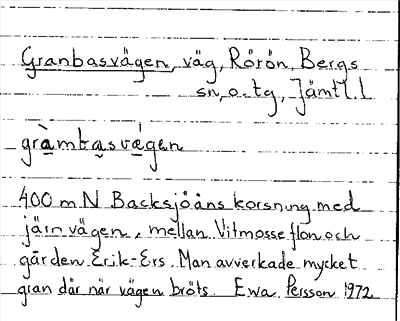 Granbasvägen, väg, Rörön, Bergs
sn, o. tg, Jämtl. l
gràmbasvǽgen
400 m N Backsjöåns korsning med
järnvägen, mellan Vitmosseflon och
gården Erik-Ers. Man avverkade mycket
gran där när vägen bröts. Ewa Persson 1972